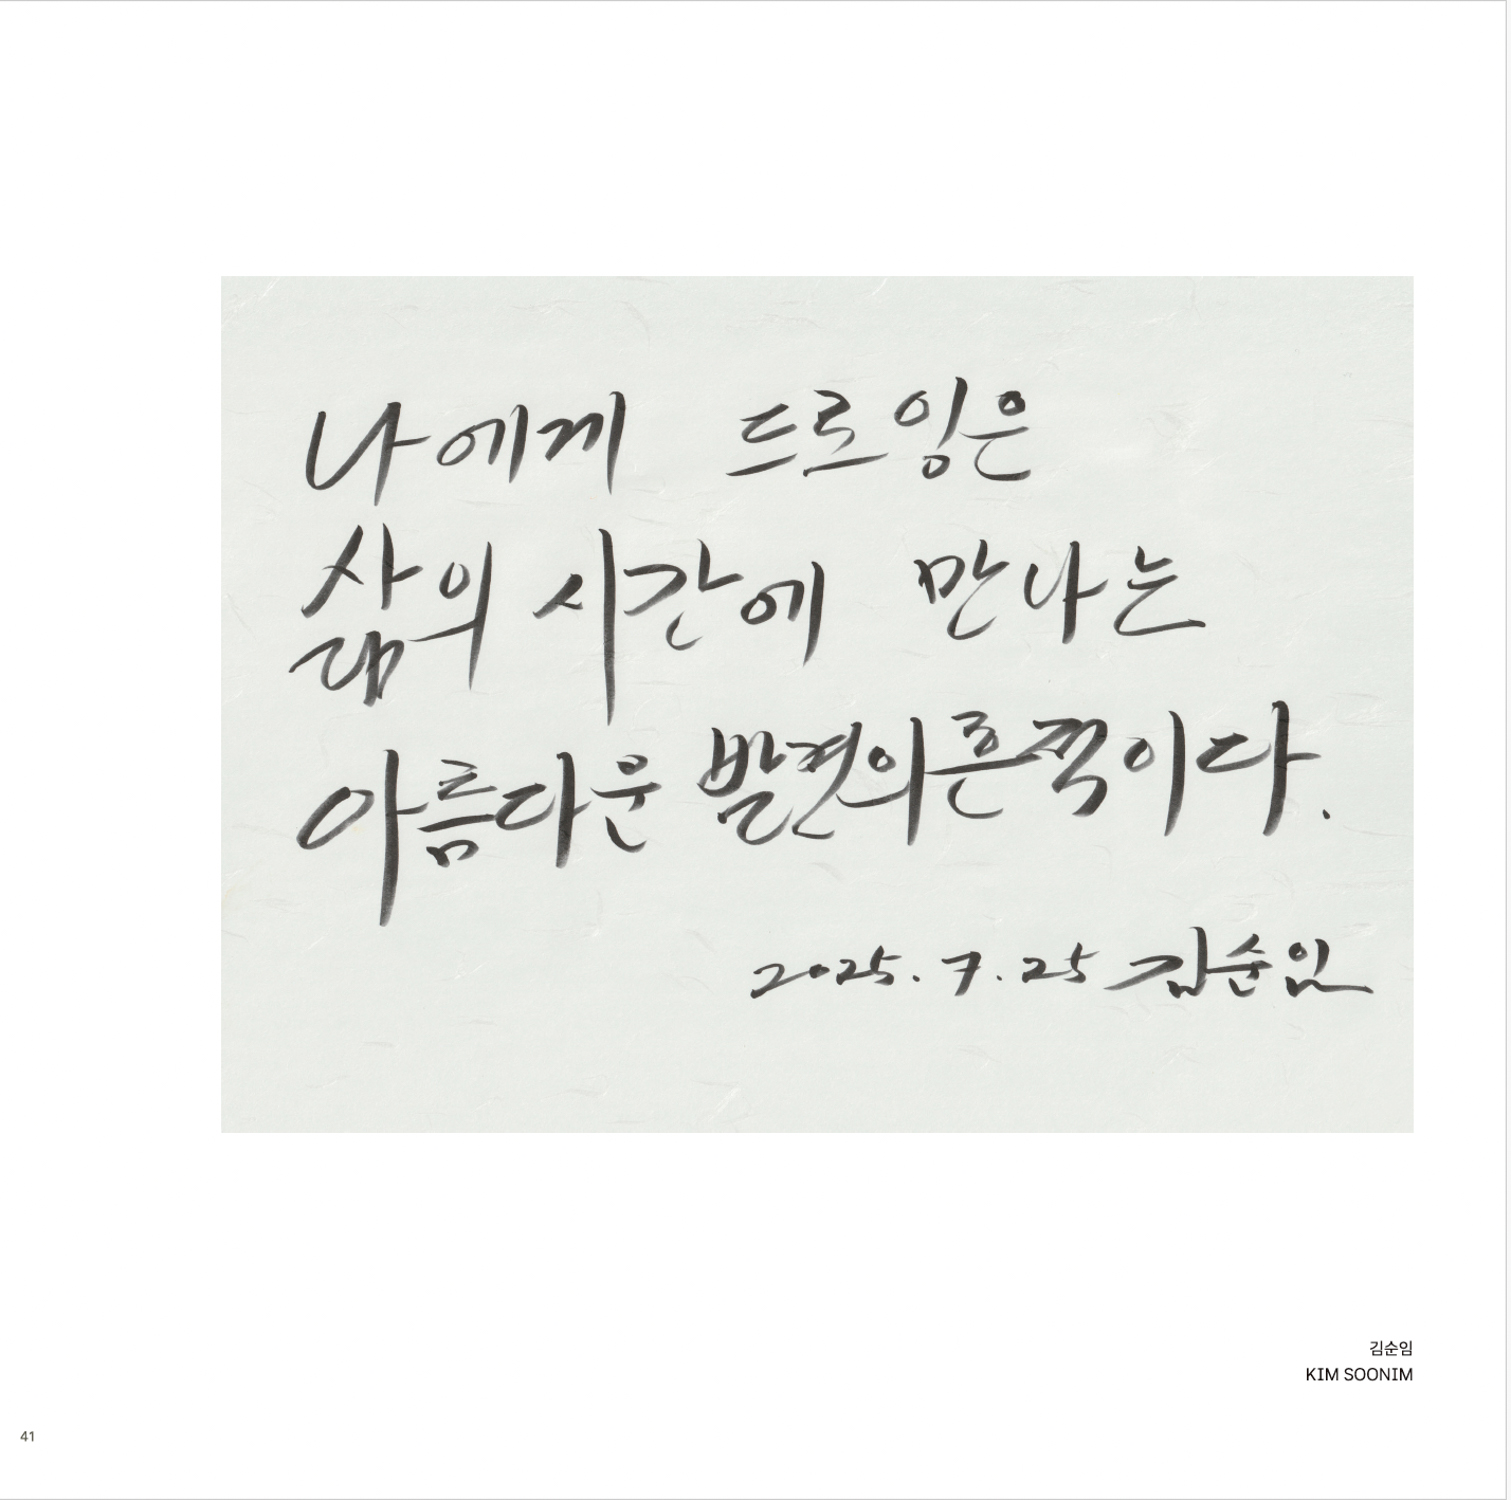 나에게 드로잉은
삶의 시간에 만나는
아름다운 발견의 흔적이다.
2025. 7. 25 김순임
김순임
KIM SOONIM
41